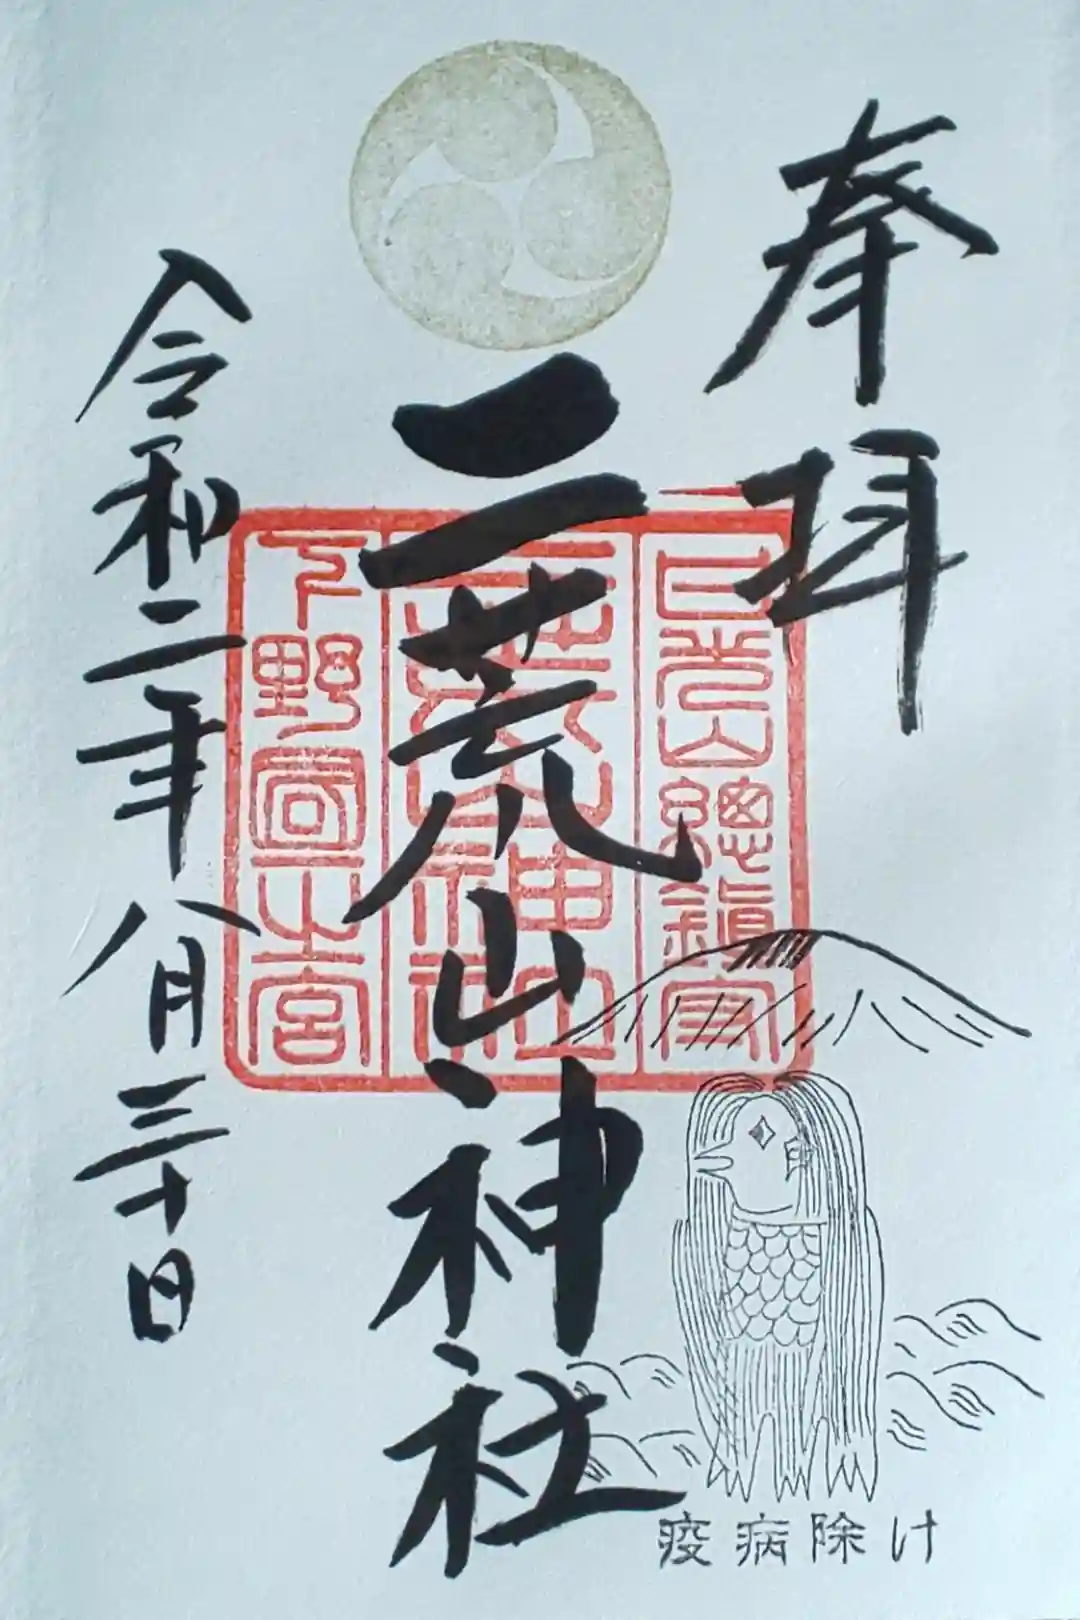 奉拝
二荒山神社
令和二年八月三十日
日光山總鎮守
二荒山神社
下野國一之宮
疫病除け